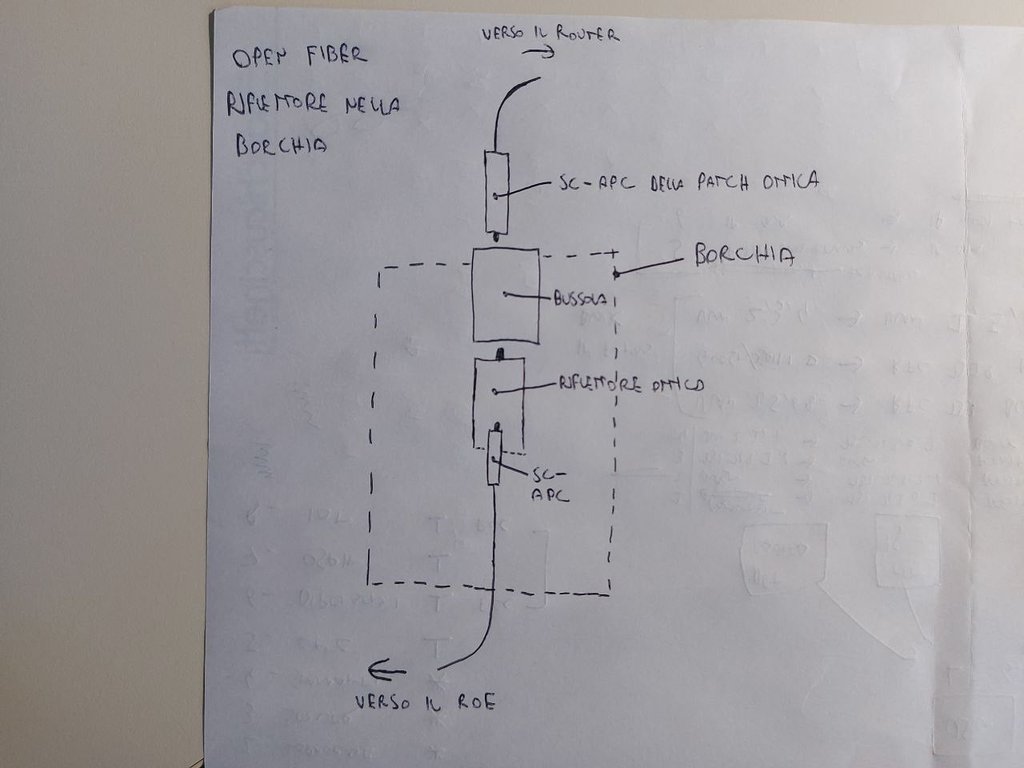 VERSO IL ROUTER
OPEN FIBER
RIFLETTORE NELLA
BORCHIA
SC-APC DELLA PATCH OTTICA
BORCHIA
BUSSOLA
RIFLETTORE OTTICO
SC-
APC
VERSO IL ROE